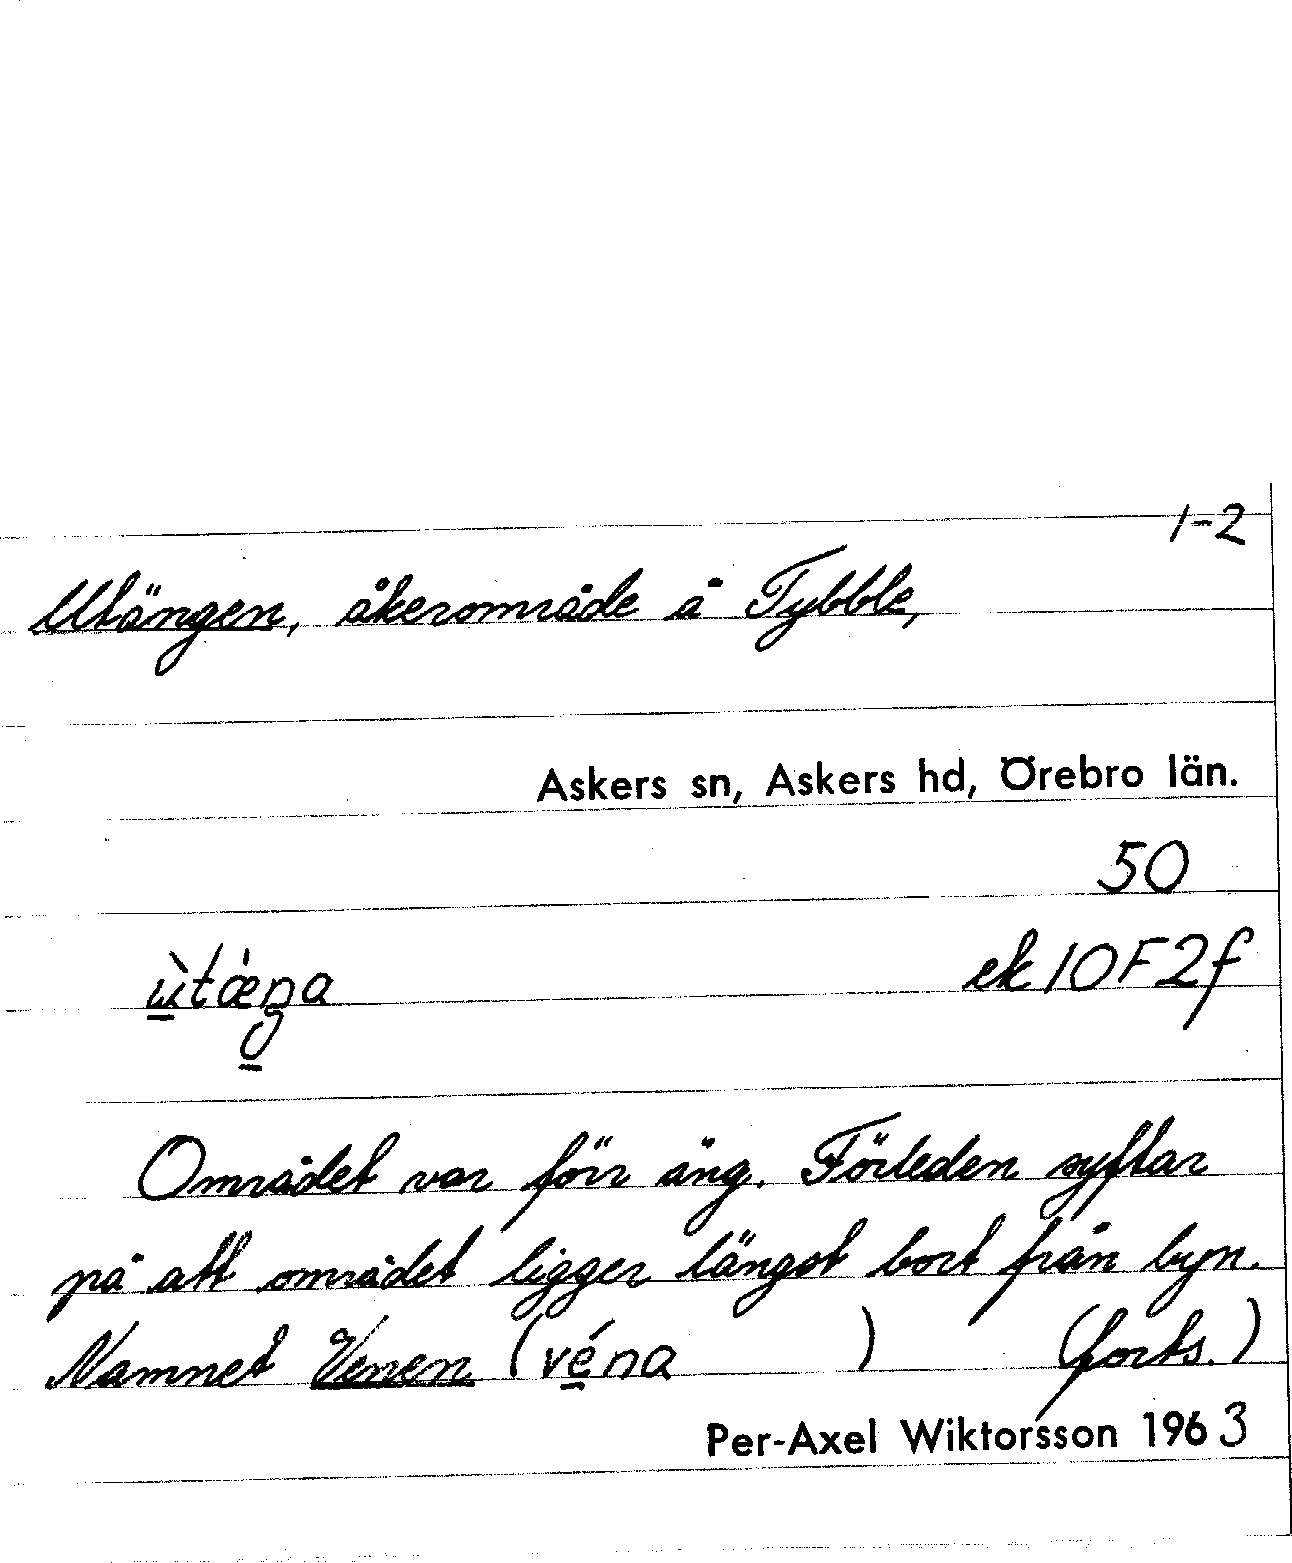 1-2
Utängen, åkerområde å Tybble,
Askers sn, Askers hd, Örebro län.
50
ek 10F2f
Området var förr äng. Förleden syftar
på att området ligger längst bort från byn.
Namnet Venen (véna ) (forts.)
Per-Axel Wiktorsson 1963